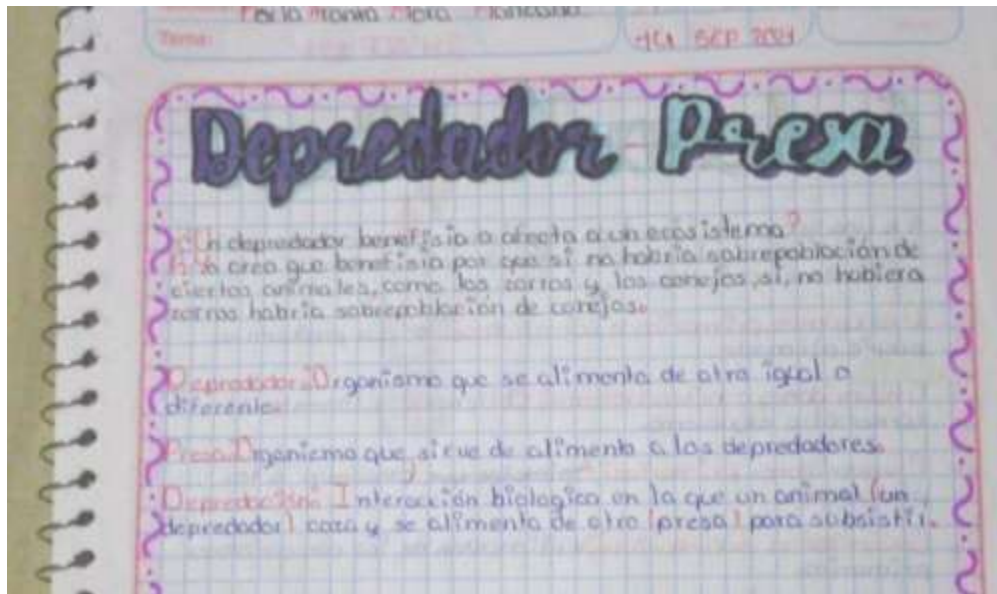 Tema:
SEP
Depredador - Presa
¿Un depredador benefisia o afecta a un ecosistema?
creo que benefisia por que si no habria sobrepoblación de
ciertos animales, como los zorros y los conejos, si, no hubiera
zorros habria sobrepoblación de conejos.
Depredador: Organismo que se alimenta de otro igual o
diferente.
Presa: Organismo que sirve de alimento a los depredadores.
Depredación: Interacción biologica en la que un animal (un
depredador) caza y se alimenta de otro (presa) para subsistir.